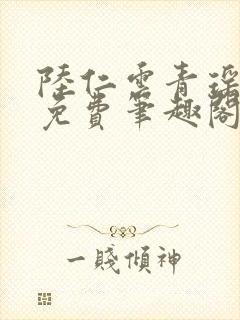 陸仁雲青瑶
免費筆趣閣
一賤傾神